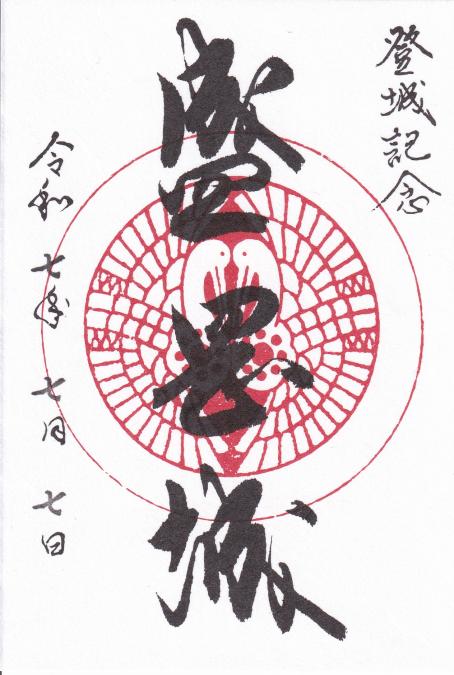 登城記念
盛岡城
令和七年七月七日